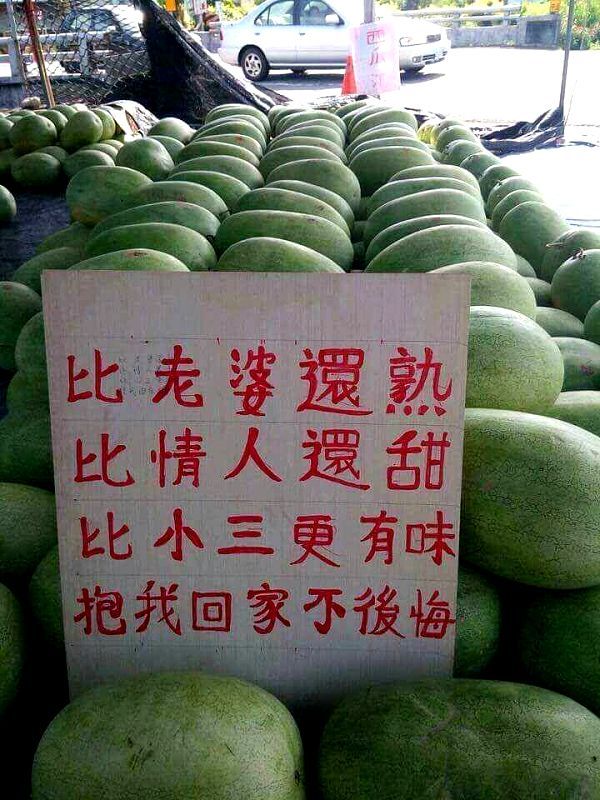 比老婆還熟
比情人還甜
比小三更有味
抱我回家不後悔
西瓜